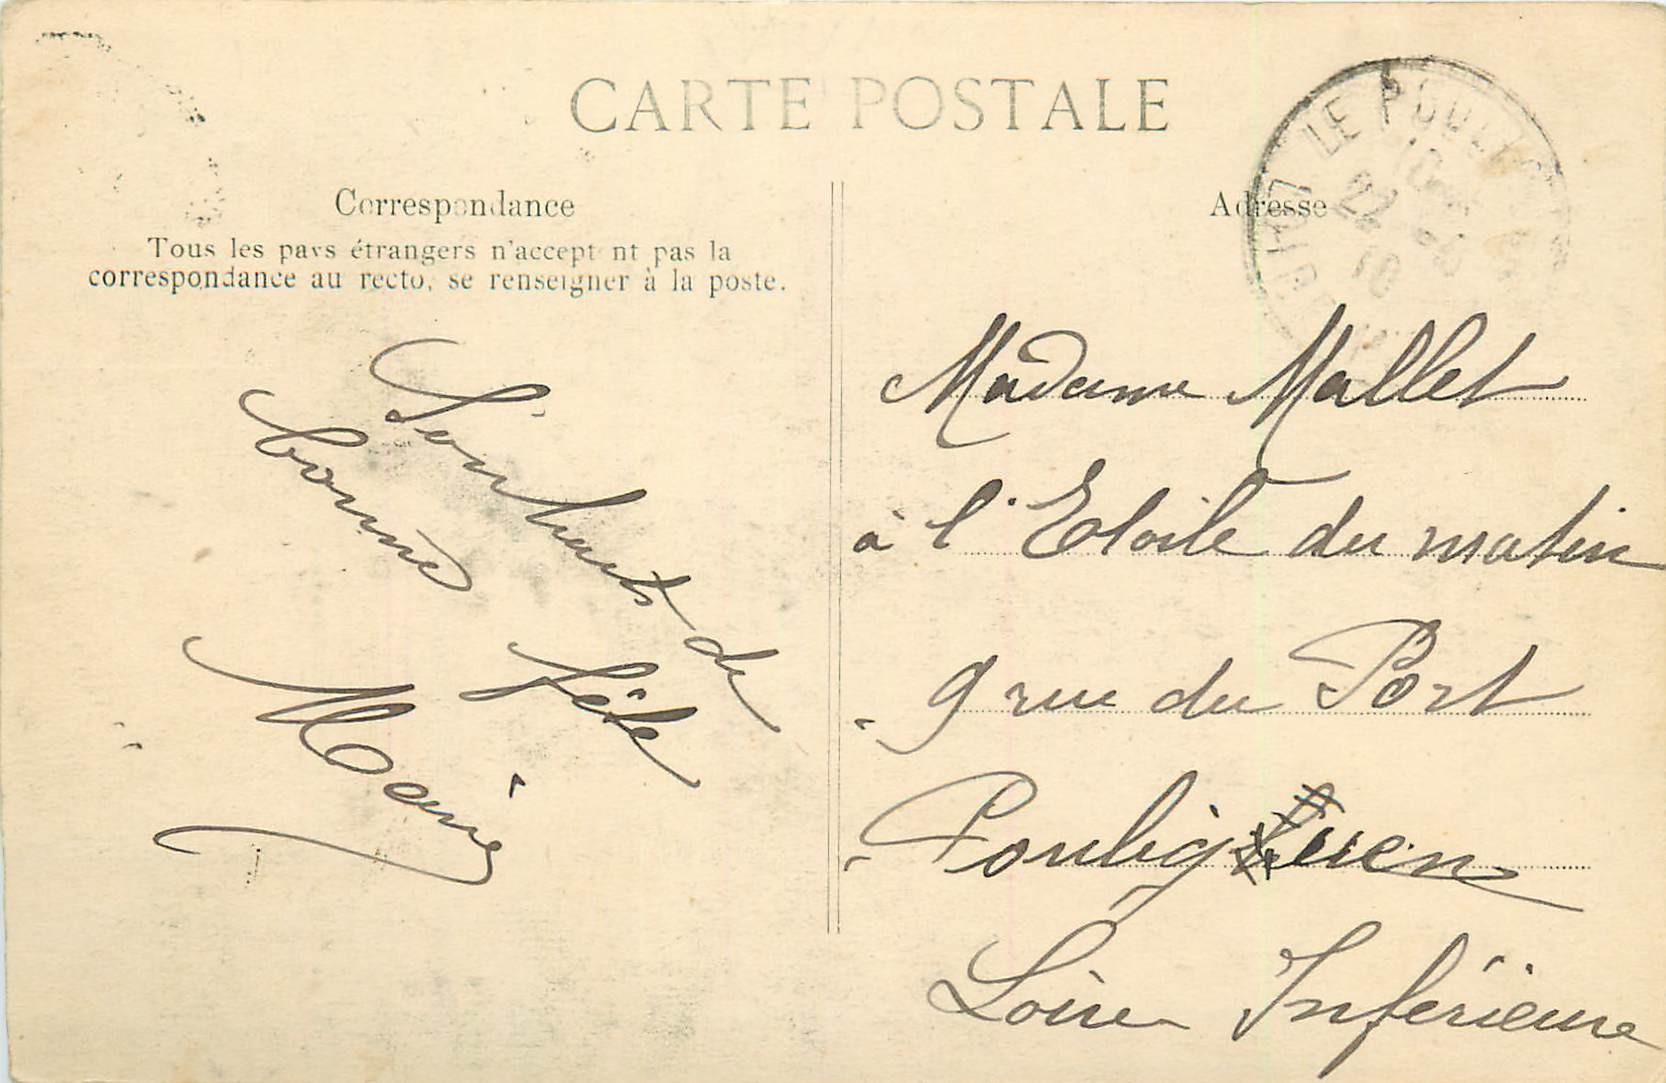 CARTE POSTALE
Correspondance
Tous les pays étrangers n'accept nt pas la
correspondance au recto, se renseigner à la poste.
Souhaits de
bonne fête
Marie
Adresse
LE POULI
22
10
Madame Mallet
à l'Etoile du matin
9 rue du Port
Pouliguen
Loire Inférieure